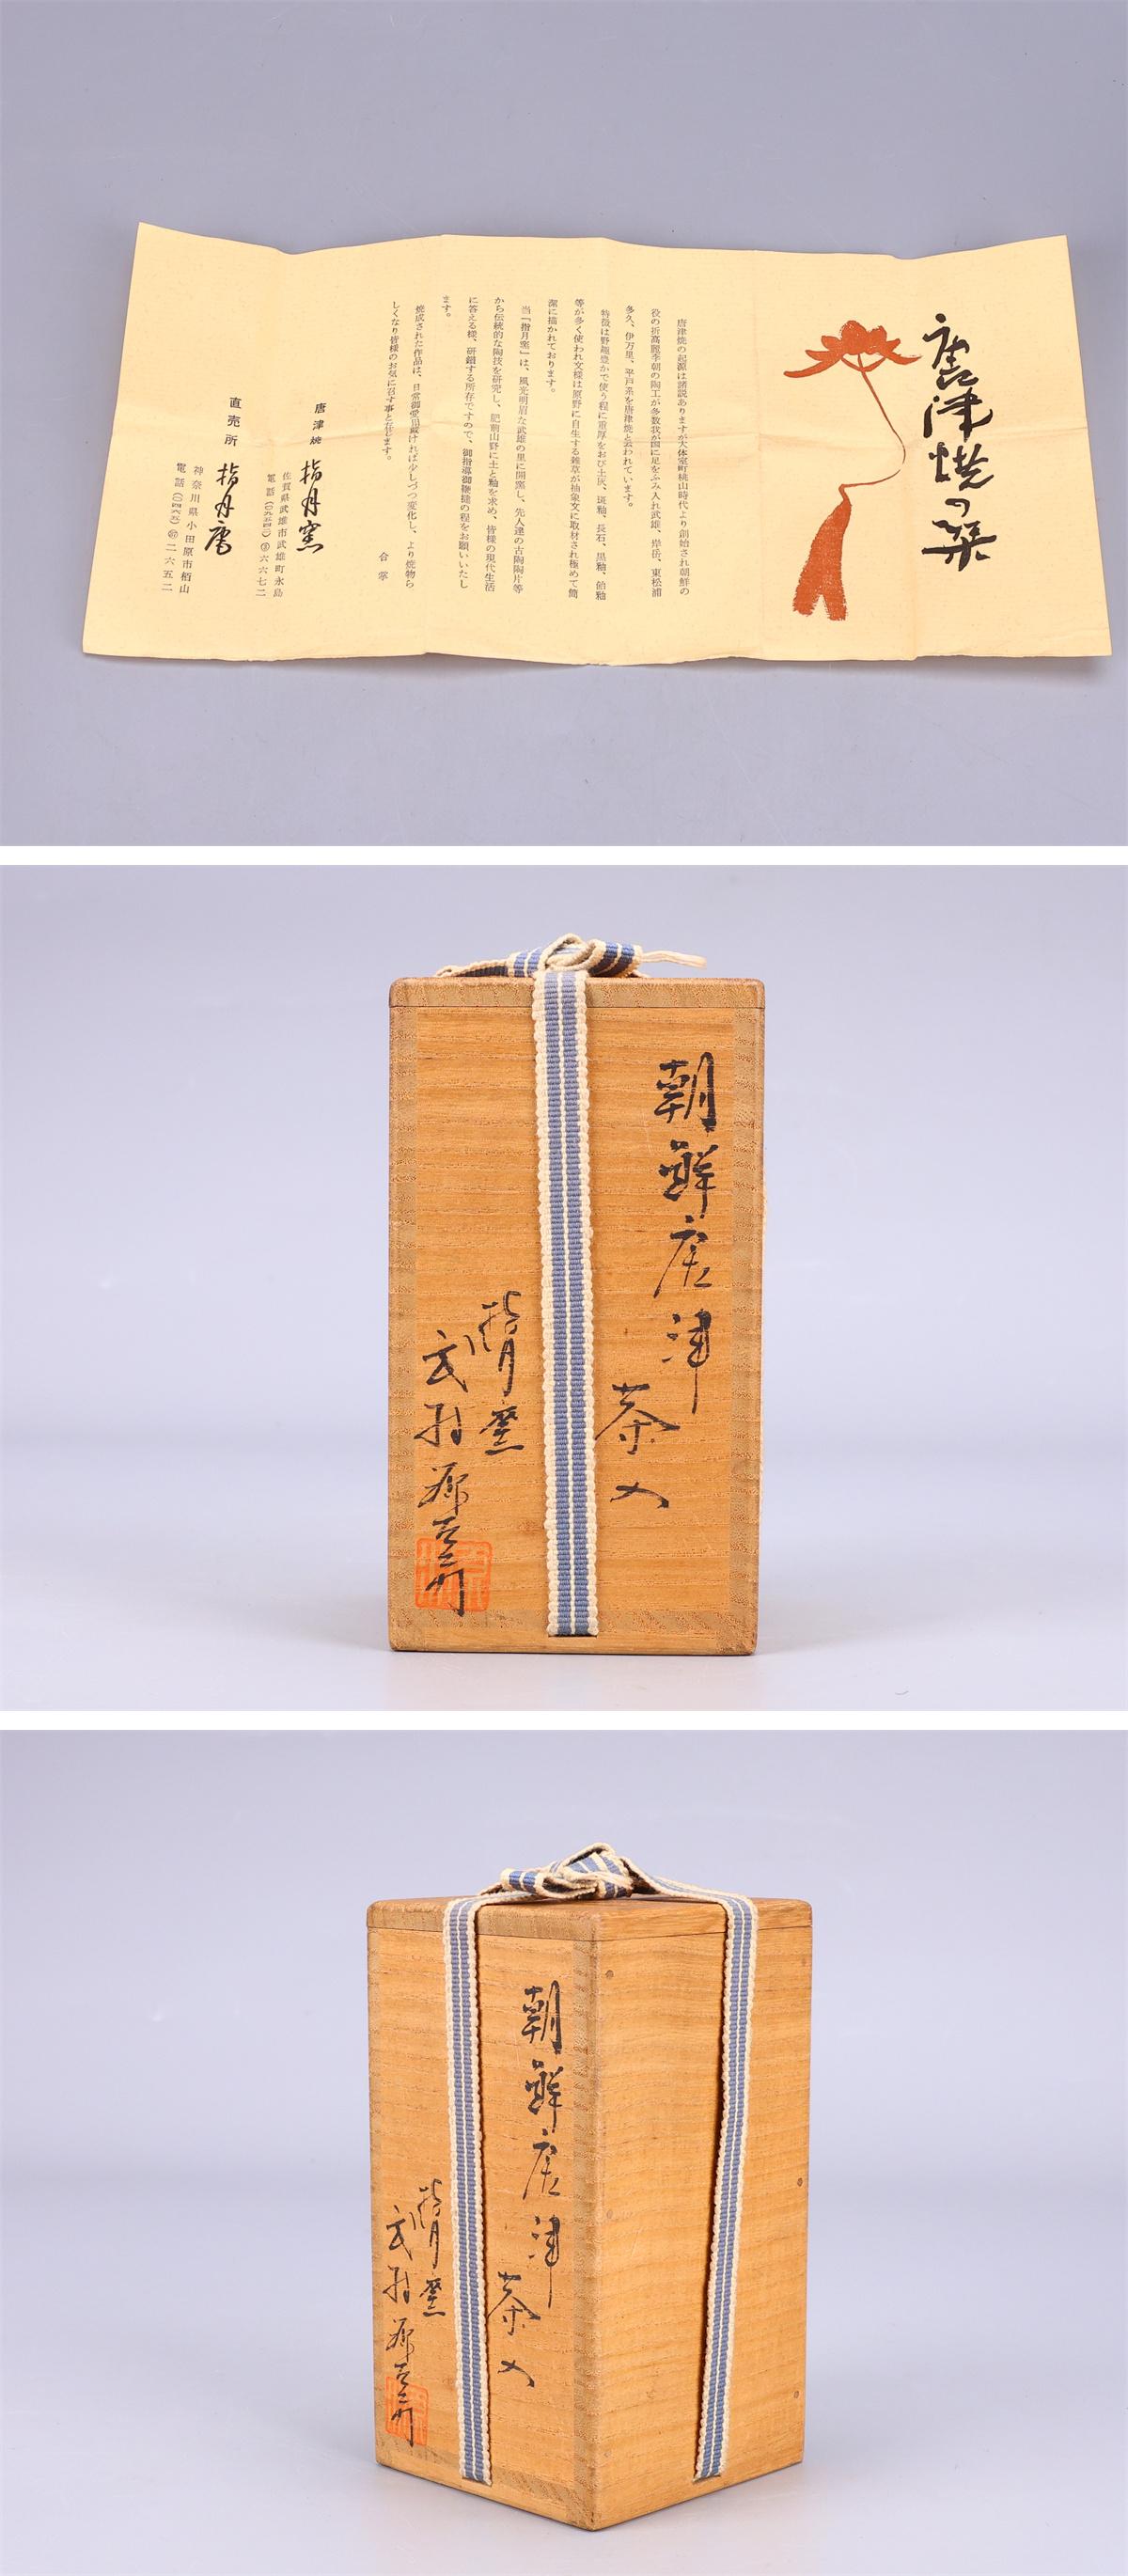 唐津焼の栞
唐津焼の起源は諸説ありますが大体室町桃山時代より創始され朝鮮の
役の折高麗李朝の陶工が多数我が国に足をふみ入れ武雄、岸岳、東松浦
多久、伊万里、平戸系を唐津焼と云われています。
特徴は野趣豊かで使う程に重厚をおび土灰、斑釉、長石、黒釉、飴釉
等が多く使われ文様は原野に自生する雑草が抽象文に取材され極めて簡
潔に描かれております。
当「指月窯」は、風光明眉な武雄の里に開窯し、先人達の古陶陶片等
から伝統的な陶技を研究し、肥前山野に土と釉を求め、皆様の現代生活
に答える様、研鑽する所存ですので、御指導御鞭撻の程をお願いいたし
ます。
焼成された作品は、日常御愛用戴ければ少しづつ変化し、より焼物ら
しくなり皆様のお気に召す事と存じます。
合掌
唐津焼 指月窯
佐賀県武雄市武雄町永島
直売所 指月窯
神奈川県小田原市栢山
朝鮮唐津
茶入
指月窯
朝鮮唐津
茶入
指月窯